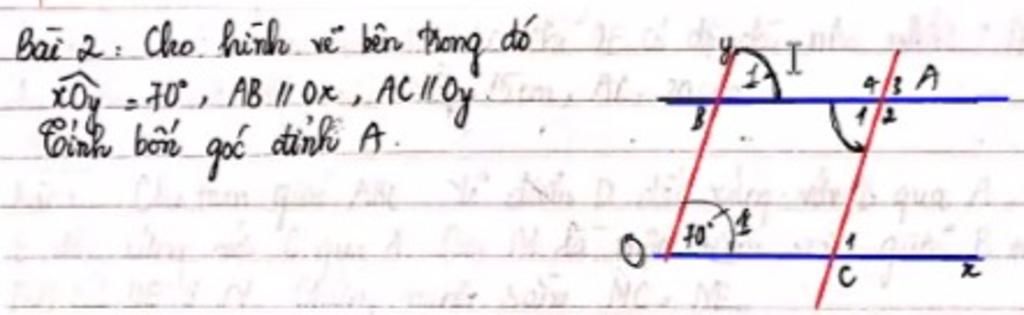 Bài 2: Cho hình vẽ bên trong đó
xOy = 70°, AB // Ox, AC // Oy
Tính bốn góc đỉnh A.
y 1 I 4 3 A
B 1 2
O 70° 1 1
C x